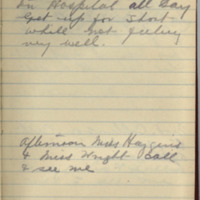 In Hospital all Day
Get up for short
while not feeling
very well.
Afternoon Miss Huggins
& Miss Wright Call
& see me